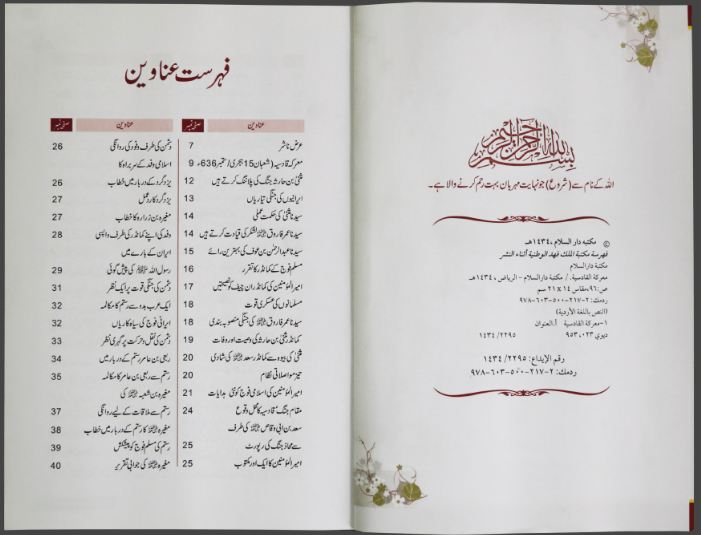 بسم الله الرحمن الرحيم
اللہ کے نام سے (شروع) جو نہایت مہربان بہت رحم کرنے والا ہے۔
© مكتبة دار السلام، ١٤٣٤هـ
فهرسة مكتبة الملك فهد الوطنية أثناء النشر
مكتبة دار السلام
معركة القادسية. / مكتبة دار السلام - الرياض، ١٤٣٤هـ
ص:٩٦، مقاس ١٤ x ٢١ سم
ردمك: ٢-٢١٧-٥٠٠-٦٠٣-٩٧٨
(النص باللغة الأردية)
١-معركة القادسية أ.العنوان
ديوي ٩٥٣،٠٢٣ ١٤٣٤/٢٢٩٥
رقم الإيداع: ١٤٣٤/٢٢٩٥
ردمك: ٢-٢١٧-٥٠٠-٦٠٣-٩٧٨
فہرست عناوین
عناوین صفحہ نمبر
عرض ناشر 7
معرکہ قادسیہ (شعبان 15 ہجری / ستمبر 636ء) 9
مثنیٰ بن حارثہ جنگ کی پلاننگ کرتے ہیں 12
ایرانیوں کی جنگی تیاریاں 13
سیدنا مثنیٰ کی حکمت عملی 14
سیدنا عمر فاروق لشکر کی قیادت کرتے ہیں 14
سیدنا عبدالرحمٰن بن عوف کی بہترین رائے 15
مسلم فوج کے کمانڈر کا تقرر 16
امیر المؤمنین کی کمانڈر ان چیف کو نصیحتیں 17
مسلمانوں کی عسکری قوت 18
سیدنا عمر فاروق کی جنگی منصوبہ بندی 18
کمانڈر مثنیٰ بن حارثہ کی وصیت اور وفات 19
مثنیٰ کی بیوہ سے کمانڈر سعد کی شادی 20
تیز مواصلاتی نظام 20
امیر المؤمنین کی اسلامی فوج کو نئی ہدایات 21
مقام جنگ: قادسیہ کا محل وقوع 24
سعد بن ابی وقاص کی طرف
سے محاذ جنگ کی رپورٹ 25
امیر المؤمنین کا ایک اور مکتوب 25
عناوین صفحہ نمبر
دشمن کی طرف وفود کی روانگی 26
اسلامی وفد کے سربراہ کا
یزدگرد کے دربار میں خطاب 26
یزدگرد کا رد عمل 27
مغیرہ بن زرارہ کا خطاب 27
وفد کی اپنے کمانڈر کی طرف واپسی 28
ایران کے بارے میں
رسول اللہ ﷺ کی پیش گوئی 29
دشمن کی جنگی قوت پر ایک نظر 31
ایک عرب بدو سے رستم کا مکالمہ 32
ایرانی فوج کی سیاہ کاریاں 32
دشمن کی نقل و حرکت پر گہری نظر 33
ربعی بن عامر رستم کے دربار میں 34
رستم سے ربعی بن عامر کا مکالمہ 35
مغیرہ بن شعبہ کی
رستم سے ملاقات کے لیے روانگی 37
مغیرہ کا رستم کے دربار میں خطاب 38
رستم کی مسلم فوج کو پیشکش 39
مغیرہ کی جوابی تقریر 40